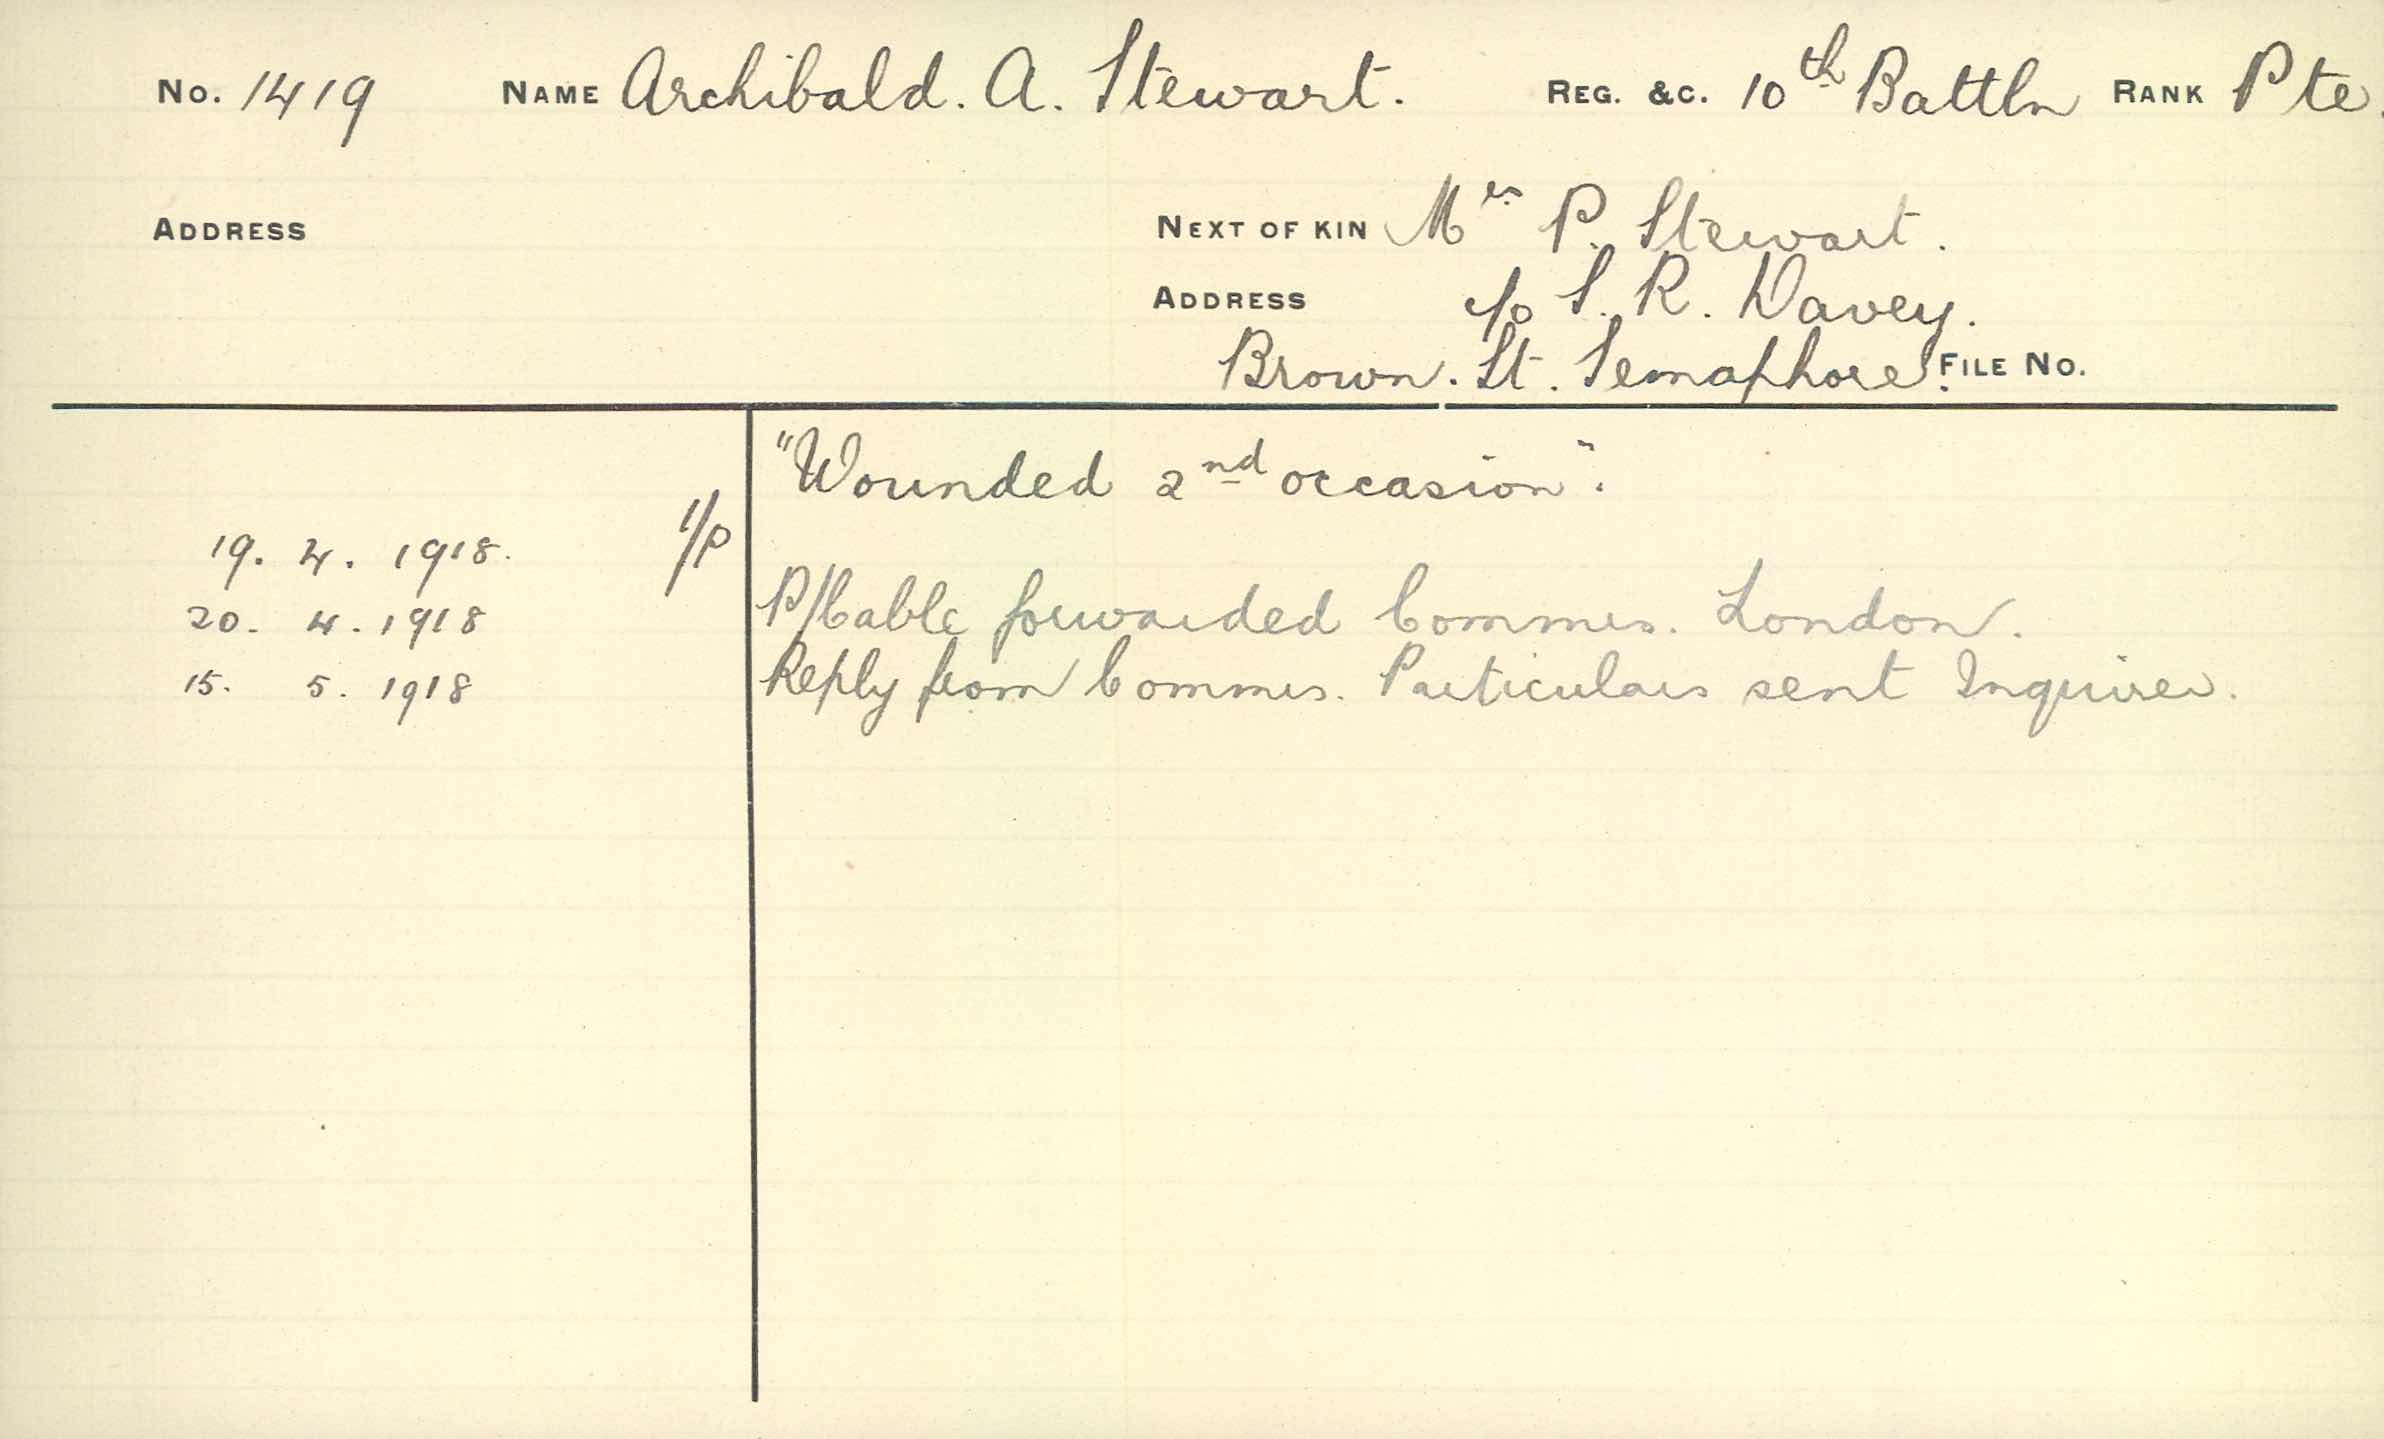 No. 1419 NAME Archibald. A. Stewart. REG. &C. 10th Battln RANK Pte.
ADDRESS NEXT OF KIN Mrs P. Stewart.
ADDRESS c/o S. R. Davey.
Brown. St. Semaphore. FILE No.
"Wounded 2nd occasion".
19. 4. 1918. 1/P
20. 4. 1918 P/Cable forwarded Commrs. London.
15. 5. 1918 Reply from Commrs. Particulars sent Inquirer.